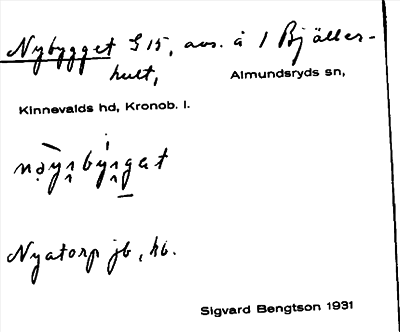 Nybygget § 15, avs. å 1 Bjäller-
hult, Almundsryds sn,
Kinnevalds hd, Kronob. l.
Nyatorp jb, kb.
Sigvard Bengtson 1931